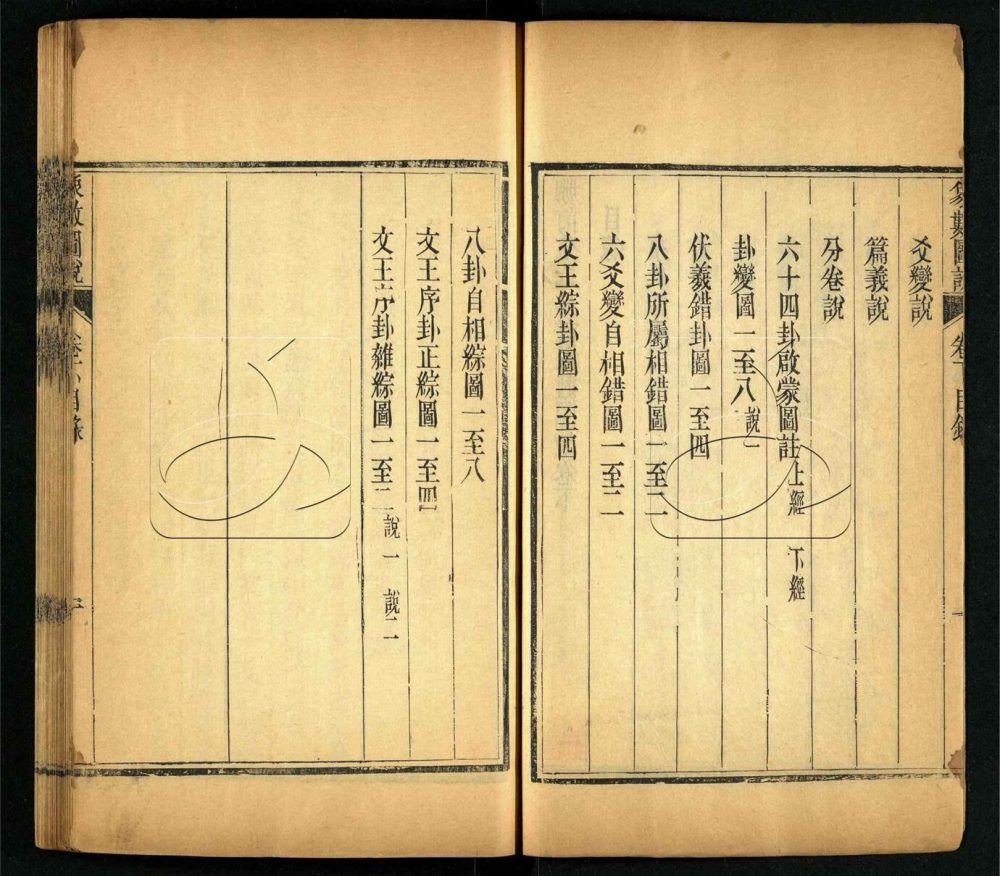 象數圖說 卷下 目錄 一
爻變說
篇義說
分卷說
六十四卦啟蒙圖註 上經 下經
卦變圖一至八 說一
伏羲錯卦圖一至四
八卦所屬相錯圖一至二
六爻變自相錯圖一至二
文王綜卦圖一至四
八卦自相綜圖一至八
文王序卦正綜圖一至四
文王序卦雜綜圖一至二 說一 說二
象數圖說 卷下 目錄 二